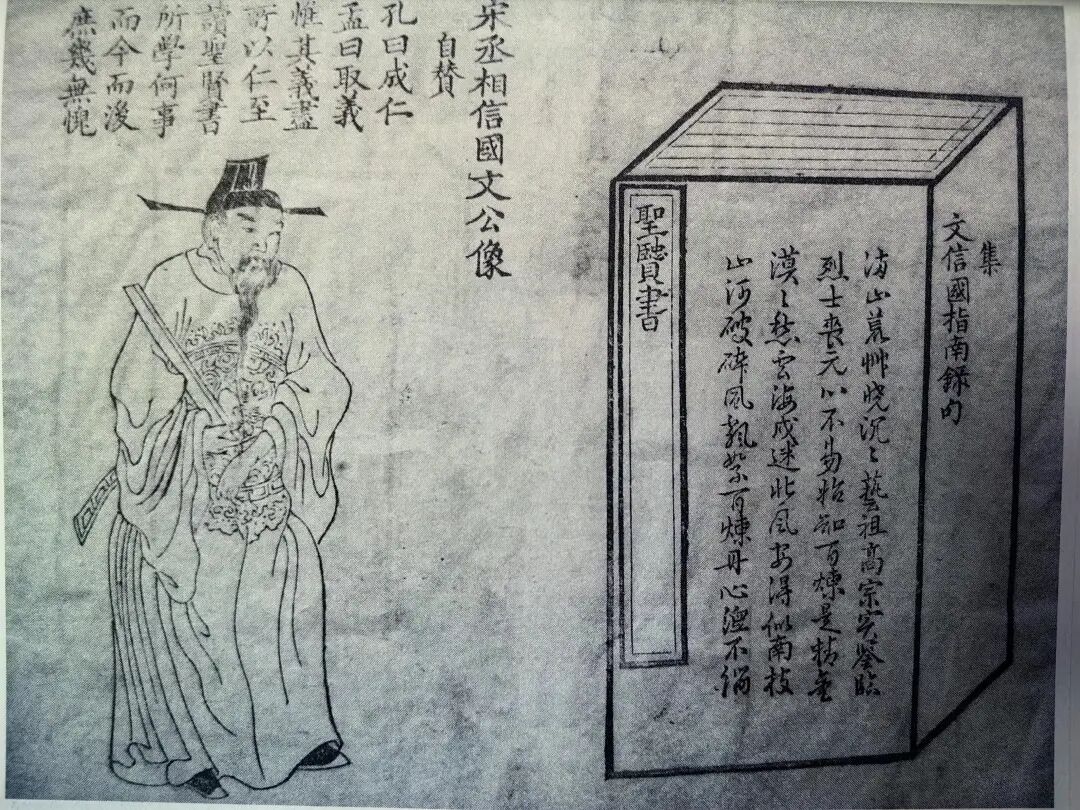 集
文信國指南錄句
海山荒艸晓沉〻藝祖高宗实鑒臨
烈士喪元心不易始知百煉是精金
漠〻愁雲海戍迷北風安得似南枝
山河破碎風飄絮百煉丹心涅不緇
聖賢書
宋丞相信國文公像
自贊
孔曰成仁
孟曰取義
惟其義盡
所以仁至
讀聖賢書
所學何事
而今而後
庶幾無愧